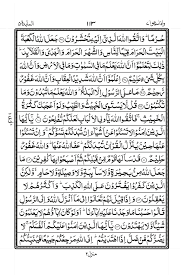 ١١٣
حُرُمًا وَاتَّقُوا اللّٰهَ الَّذِيْٓ اِلَيْهِ تُحْشَرُوْنَ ۝ جَعَلَ اللّٰهُ الْكَعْبَةَ
الْبَيْتَ الْحَرَامَ قِيٰمًا لِّلنَّاسِ وَالشَّهْرَ الْحَرَامَ وَالْهَدْيَ وَالْقَلَآئِدَ
ذٰلِكَ لِتَعْلَمُوْٓا اَنَّ اللّٰهَ يَعْلَمُ مَا فِي السَّمٰوٰتِ وَمَا فِي الْاَرْضِ وَاَنَّ اللّٰهَ
بِكُلِّ شَيْءٍ عَلِيْمٌ ۝ اِعْلَمُوْٓا اَنَّ اللّٰهَ شَدِيْدُ الْعِقَابِ وَاَنَّ اللّٰهَ غَفُوْرٌ
رَّحِيْمٌ ۝ مَا عَلَى الرَّسُوْلِ اِلَّا الْبَلٰغُ وَاللّٰهُ يَعْلَمُ مَا تُبْدُوْنَ وَمَا
تَكْتُمُوْنَ ۝ قُلْ لَّا يَسْتَوِي الْخَبِيْثُ وَالطَّيِّبُ وَلَوْ اَعْجَبَكَ كَثْرَةُ
الْخَبِيْثِ فَاتَّقُوا اللّٰهَ يٰٓاُولِي الْاَلْبَابِ لَعَلَّكُمْ تُفْلِحُوْنَ ۝ يٰٓاَيُّهَا
الَّذِيْنَ اٰمَنُوْا لَا تَسْـَٔلُوْا عَنْ اَشْيَآءَ اِنْ تُبْدَ لَكُمْ تَسُؤْكُمْ وَاِنْ
تَسْـَٔلُوْا عَنْهَا حِيْنَ يُنَزَّلُ الْقُرْاٰنُ تُبْدَ لَكُمْ عَفَا اللّٰهُ عَنْهَا وَاللّٰهُ غَفُوْرٌ
حَلِيْمٌ ۝ قَدْ سَاَلَهَا قَوْمٌ مِّنْ قَبْلِكُمْ ثُمَّ اَصْبَحُوْا بِهَا كٰفِرِيْنَ ۝ مَا جَعَلَ
اللّٰهُ مِنْۢ بَحِيْرَةٍ وَّلَا سَآئِبَةٍ وَّلَا وَصِيْلَةٍ وَّلَا حَامٍ وَّلٰكِنَّ الَّذِيْنَ
كَفَرُوْا يَفْتَرُوْنَ عَلَى اللّٰهِ الْكَذِبَ وَاَكْثَرُهُمْ لَا يَعْقِلُوْنَ ۝ وَاِذَا قِيْلَ لَهُمْ
تَعَالَوْا اِلٰى مَآ اَنْزَلَ اللّٰهُ وَاِلَى الرَّسُوْلِ قَالُوْا حَسْبُنَا مَا وَجَدْنَا عَلَيْهِ
اٰبَآءَنَا اَوَلَوْ كَانَ اٰبَآؤُهُمْ لَا يَعْلَمُوْنَ شَيْـًٔا وَّلَا يَهْتَدُوْنَ ۝ يٰٓاَيُّهَا الَّذِيْنَ اٰمَنُوْا عَلَيْكُمْ اَنْفُسَكُمْ لَا
يَضُرُّكُمْ مَّنْ ضَلَّ اِذَا اهْتَدَيْتُمْ اِلَى اللّٰهِ مَرْجِعُكُمْ جَمِيْعًا فَيُنَبِّئُكُمْ